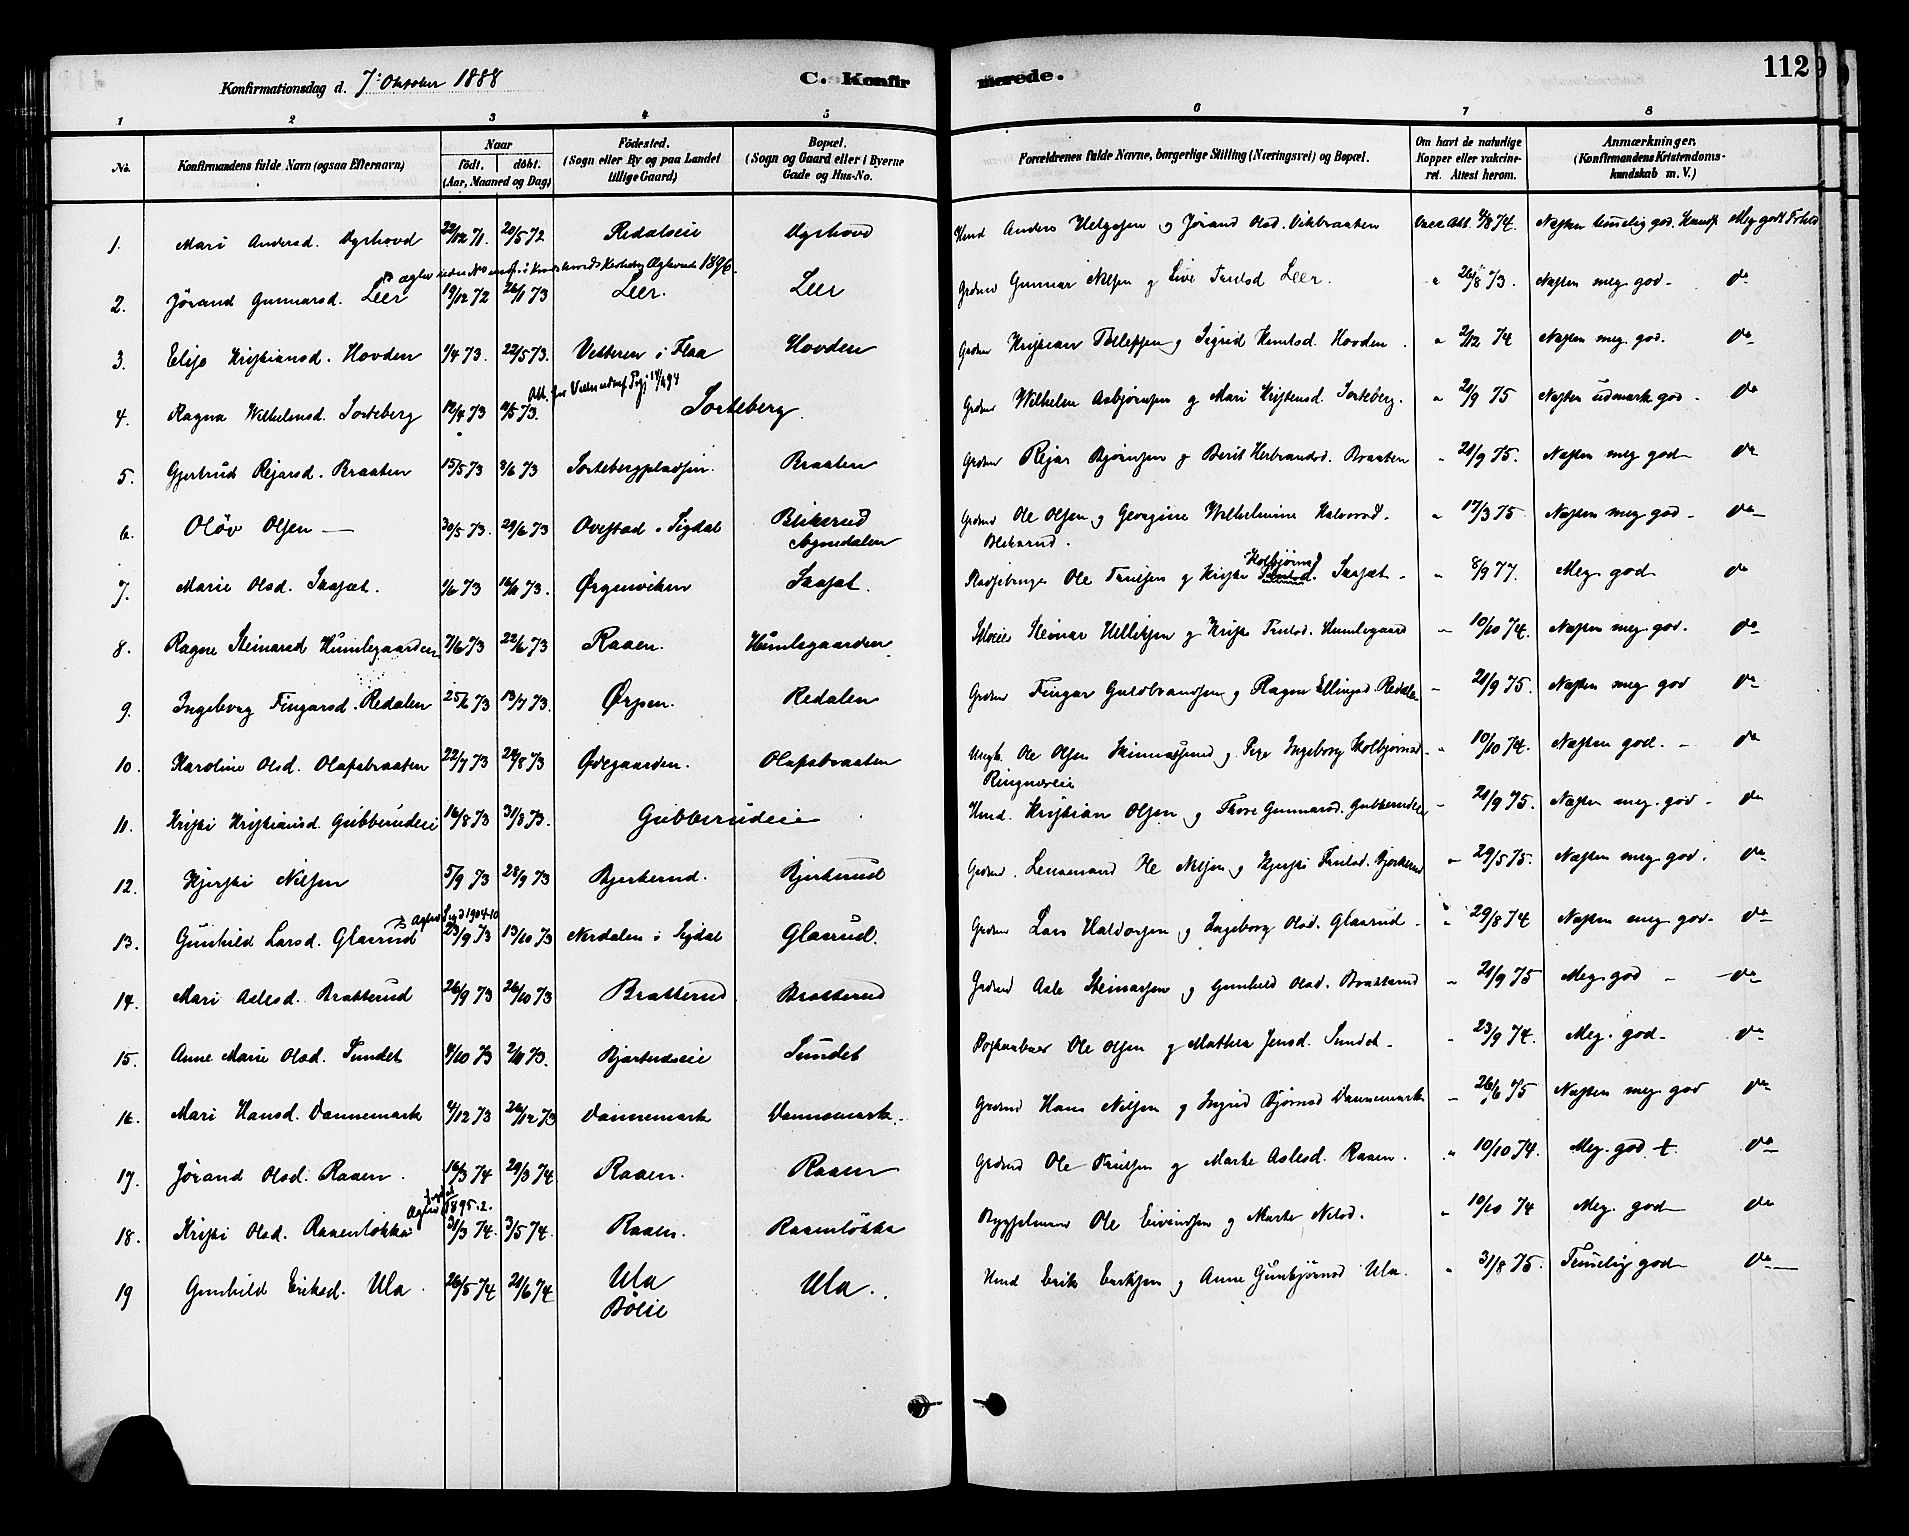 Konfirmationsdag d. 7: Oktober 1888
C. Konfirmerede.
112
1 2 3 4 5 6 7 8
No. Konfirmandens fulde Navn (ogsaa Efternavn) Naar födt. döbt. (Aar, Maaned og Dag) Födested. (Sogn eller By og paa Landet tillige Gaard) Bopæl. (Sogn og Gaard eller i Byerne Gade og Hus-No. Forældrenes fulde Navne, borgerlige Stilling (Næringsvei) og Bopæl. Om havt de naturlige Kopper eller vakcineret. Attest herom. Anmærkninger. (Konfirmandens Kristendomskundskab m. V.)
1. Mari Andersd. Dyrhovd 22/12 71. 20/5 72 Redaleie Dyrhovd Hmd Anders Helgesen og Jørand Olsd. Vikbraaten Vacc. Att. 4/8 74. Næsten temmelig god Kundsk. Meg godt Forhold
1896.
2. Jørand Gunnarsd. Leer 19/12 72 26/1 73 Leer. Leer Grdmd Gunnar Nilsen og Live Truelsd Leer. " 26/8 73. Næsten meg god. do
3. Elise Kristiansd. Hovden 1/4 73. 22/5 73. Vetteren i Flaa Hovden Grdmd Kristian Tollefsen og Sigrid Knutsd. Hovden. " 2/12 74 Næsten meg god. do
4. Ragna Wilhelmsd. Sorteberg 12/4 73 11/5 73. Sorteberg. Grdmd Wilhelm Asbjørnsen og Mari Kristensd. Sorteberg. " 21/9 75 Næsten udmærk god. do
5. Gjertrud Rejarsd. Braaten 15/5 73 3/6 73 Sortebergpladsen. Braaten Grdmd Rejar Bjørnsen og Beril Herbrandsd. Braaten " 21/9 75. Næsten meg god do
6. Olöv Olsen — 30/5 73. 29/6 73 Ovestad i Sigdal Blikerud Sognedalen Grdmd Ole Olsen og Georgine Wilhelmine Halvorsd. Blekerud. " 17/3 75 Næsten meg god do
7. Marie Olsd. Skafset. 1/6 73 16/11 73. Ørgenviken Skafset. Ole Truelsen og Kristi Kolbjørnsd. Skafset. " 8/9 77. Meg god do
8. Ragne Steinarsd Humlegaarden 7/6 73 22/6 73 Raaen. Humlegaarden Selveier Steinar Helliksen og Kristi Truelsd. Humlegaard " 10/10 74. Næsten meg god. do
9. Ingeborg Fingarsd. Redalen 25/6 73 13/7 73. Ørpen. Redalen Grdmd Fingar Guldbrandsen og Ragne Ellingsd. Redalen " 21/9 75. Næsten meg god do
10. Karoline Olsd. Olafsbraaten 22/7 73 24/8 73 Ødegaarden. Olafsbraaten Ungk. Ole Olsen og Pige Ingeborg Kolbjørnsd. Ringneseie " 10/10 74. Næsten god. do
11. Kristi Kristiansd. Gubberudeie 16/8 73 31/8 73. Gubberudeie Hmd. Kristian Olsen og Thore Gunnarsd. Gubberudeie " 21/9 75. Næsten meg. god. do
12. Kjersti Nilsen 5/9 73 28/9 73 Bjerkerud. Bjerkerud Grdmd. Lensmand Ole Nilsen og Kjersti Truelsd. Bjerkerud " 29/5 75. Næsten meg god. do
13. Gunhild Larsd. Glasrud 23/9 73 13/10 73 Nerdalen i Sigdal Glasrud. Grdmd Lars Haldorsen og Ingeborg Olsd. Glasrud. " 29/8 74 Næsten meg god. do
14. Mari Aslesd. Bratterud 26/9 73 26/10 73 Bratterud Bratterud Grdmd Asle Steinarsen og Gunhild Olsd. Bratterud " 21/9 75 Meg. god — do
15. Anne Marie Olsd. Sundet 4/10 73 2/11 73. Bjerkerudeie Sundet Postaabner Ole Olsen og Mathea Jensd. Sundet. " 23/9 74. Meg. god. do
16. Mari Hansd. Dannemark 4/12 73 26/12 73 Dannemark Dannemark. Grdmd Hans Nilsen og Ingrid Bjørnsd Dannemark " 26/6 75 Næsten meg god do
17. Jørand Olsd. Raaen. 16/3 74 29/3 74 Raaen. Raaen Grdmd Ole Truelsen og Marte Aslesd. Raaen. " 10/10 74. Meg. god + do
18. Kristi Olsd. Raaenløkka 31/3 74. 3/5 74. Raaen. Raaenløkka Ole Eivindsen og Marte Nilsd. " 10/10 74 Meg. god do
19 Gunhild Eriksd. Ula. 26/5 74 21/6 74 Ula Böeie Ula. Hmd Erik Eriksen og Anne Gunbjørnsd Ula. " 31/8 75. Temelig god do